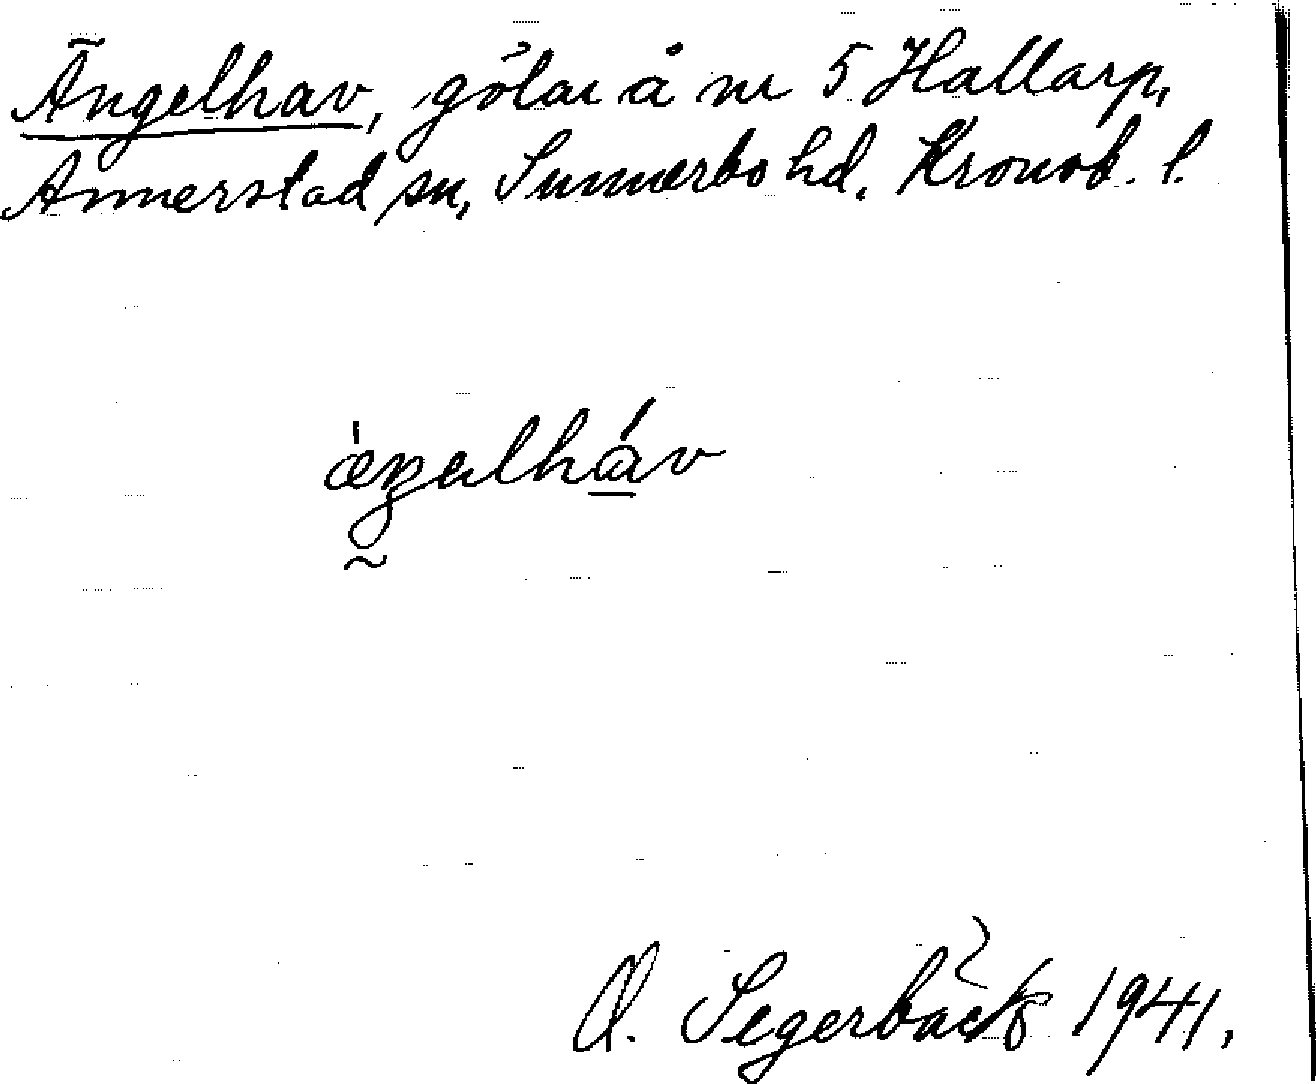 Ängelhav, gölar å nr 5 Hallarp,
Annerstad sn, Sunnerbo hd. Kronob. l.
ǽŋəlháv
O. Segerbäck 1941.